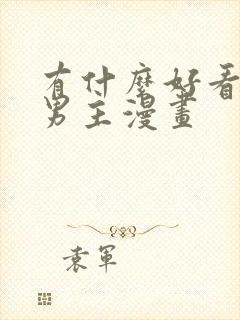 有什麼好看
男主漫畫
袁軍